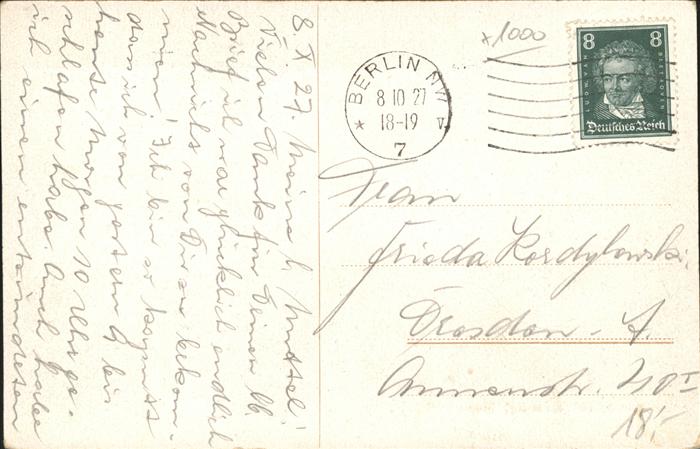 8. X. 27. Meine l. Muttel!
Vielen Dank für Deinen lb.
Brief ich war glücklich endlich
Nachricht von Dir zu bekom-
men. Ich bin so
dass ich von gestern 9 bis
heute Morgen 10 Uhr ge-
schlafen habe. Auch habe
ich einen
x1000
BERLIN NW
8 10 27
18-19 V
* 7
8 8
LUDWIG VAN BEETHOVEN
Deutsches Reich
Frau
Frieda Kordylewski
Dresden-A.
Annenstr. 40 I
18,-